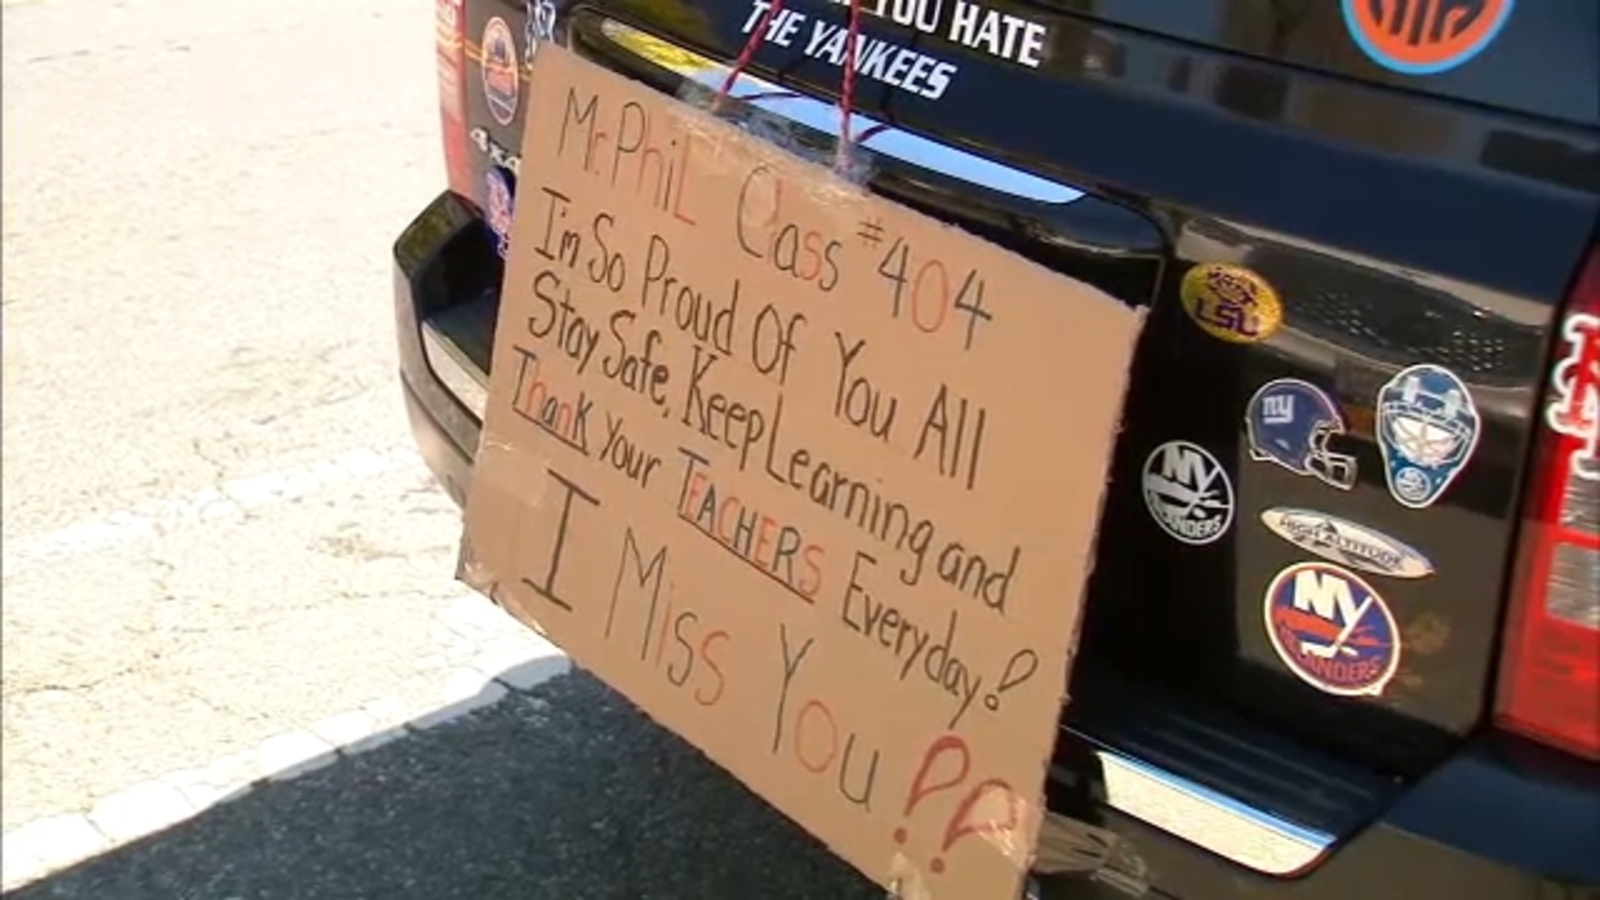 YOU HATE
THE YANKEES
4x4
Mr. PhiL Class #404
I'm So Proud Of You All
Stay Safe, Keep Learning and
Thank Your TEACHERS Everyday!
I Miss You !!
LSU
ny
NY
ISLANDERS
HIGH ALTITUDE
NY
ISLANDERS